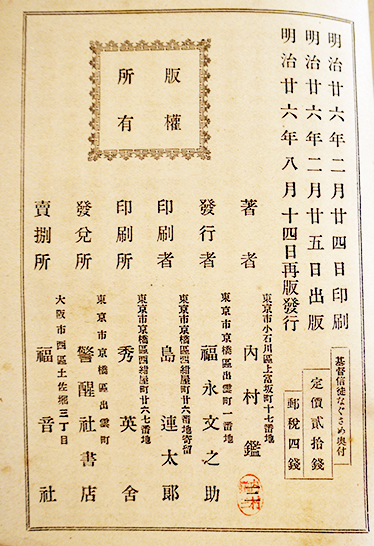 明治廿六年二月廿四日印刷
明治廿六年二月廿五日出版
明治廿六年八月十四日再版發行
基督信徒なぐさめ奥付
定價貳拾錢
郵稅四錢
版權
所有
著者
東京市小石川區上富坂町十七番地
內村鑑三
發行者
東京市京橋區出雲町一番地
福永文之助
印刷者
東京市京橋區西紺屋町廿六番地寄留
島連太郎
印刷所
東京市京橋區西紺屋町廿六七番地
秀英舍
發兌所
東京市京橋區出雲町
警醒社書店
賣捌所
大阪市西區土佐堀三丁目
福音社